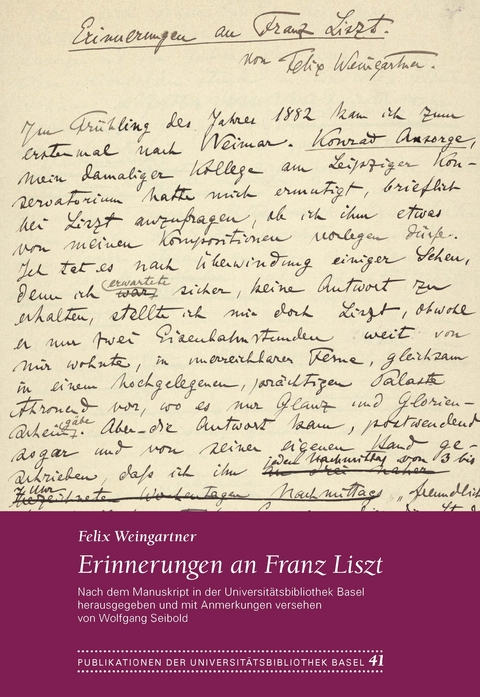 Erinnerungen an Franz Liszt.
von Felix Weingartner.
Im Frühling des Jahres 1882 kam ich zum
erstenmal nach Weimar. Konrad Ansorge,
mein damaliger Kollege am Leipziger Kon-
servatorium hatte mich ermutigt, brieflich
bei Liszt anzufragen, ob ich ihm etwas
von meinen Kompositionen vorlegen dürfe.
Ich tat es nach Überwindung einiger Scheu,
denn ich erwartete sicher, keine Antwort zu
erhalten, stellte ich mir doch Liszt, obwohl
er nur zwei Eisenbahnstunden weit von
mir wohnte, in unerreichbarer Ferne, gleichsam
in einem hochgelegenen, prächtigen Palaste
thronend vor, wo es nur Glanz und Glorien-
schein gäbe. Aber die Antwort kam, postwendend
sogar und von seiner eigenen Hand ge-
schrieben, daß ich ihn jeden Nachmittag von 3 bis
Uhr Wochentagen Nachmittags „freundlich
Felix Weingartner
Erinnerungen an Franz Liszt
Nach dem Manuskript in der Universitätsbibliothek Basel
herausgegeben und mit Anmerkungen versehen
von Wolfgang Seibold
PUBLIKATIONEN DER UNIVERSITÄTSBIBLIOTHEK BASEL 41